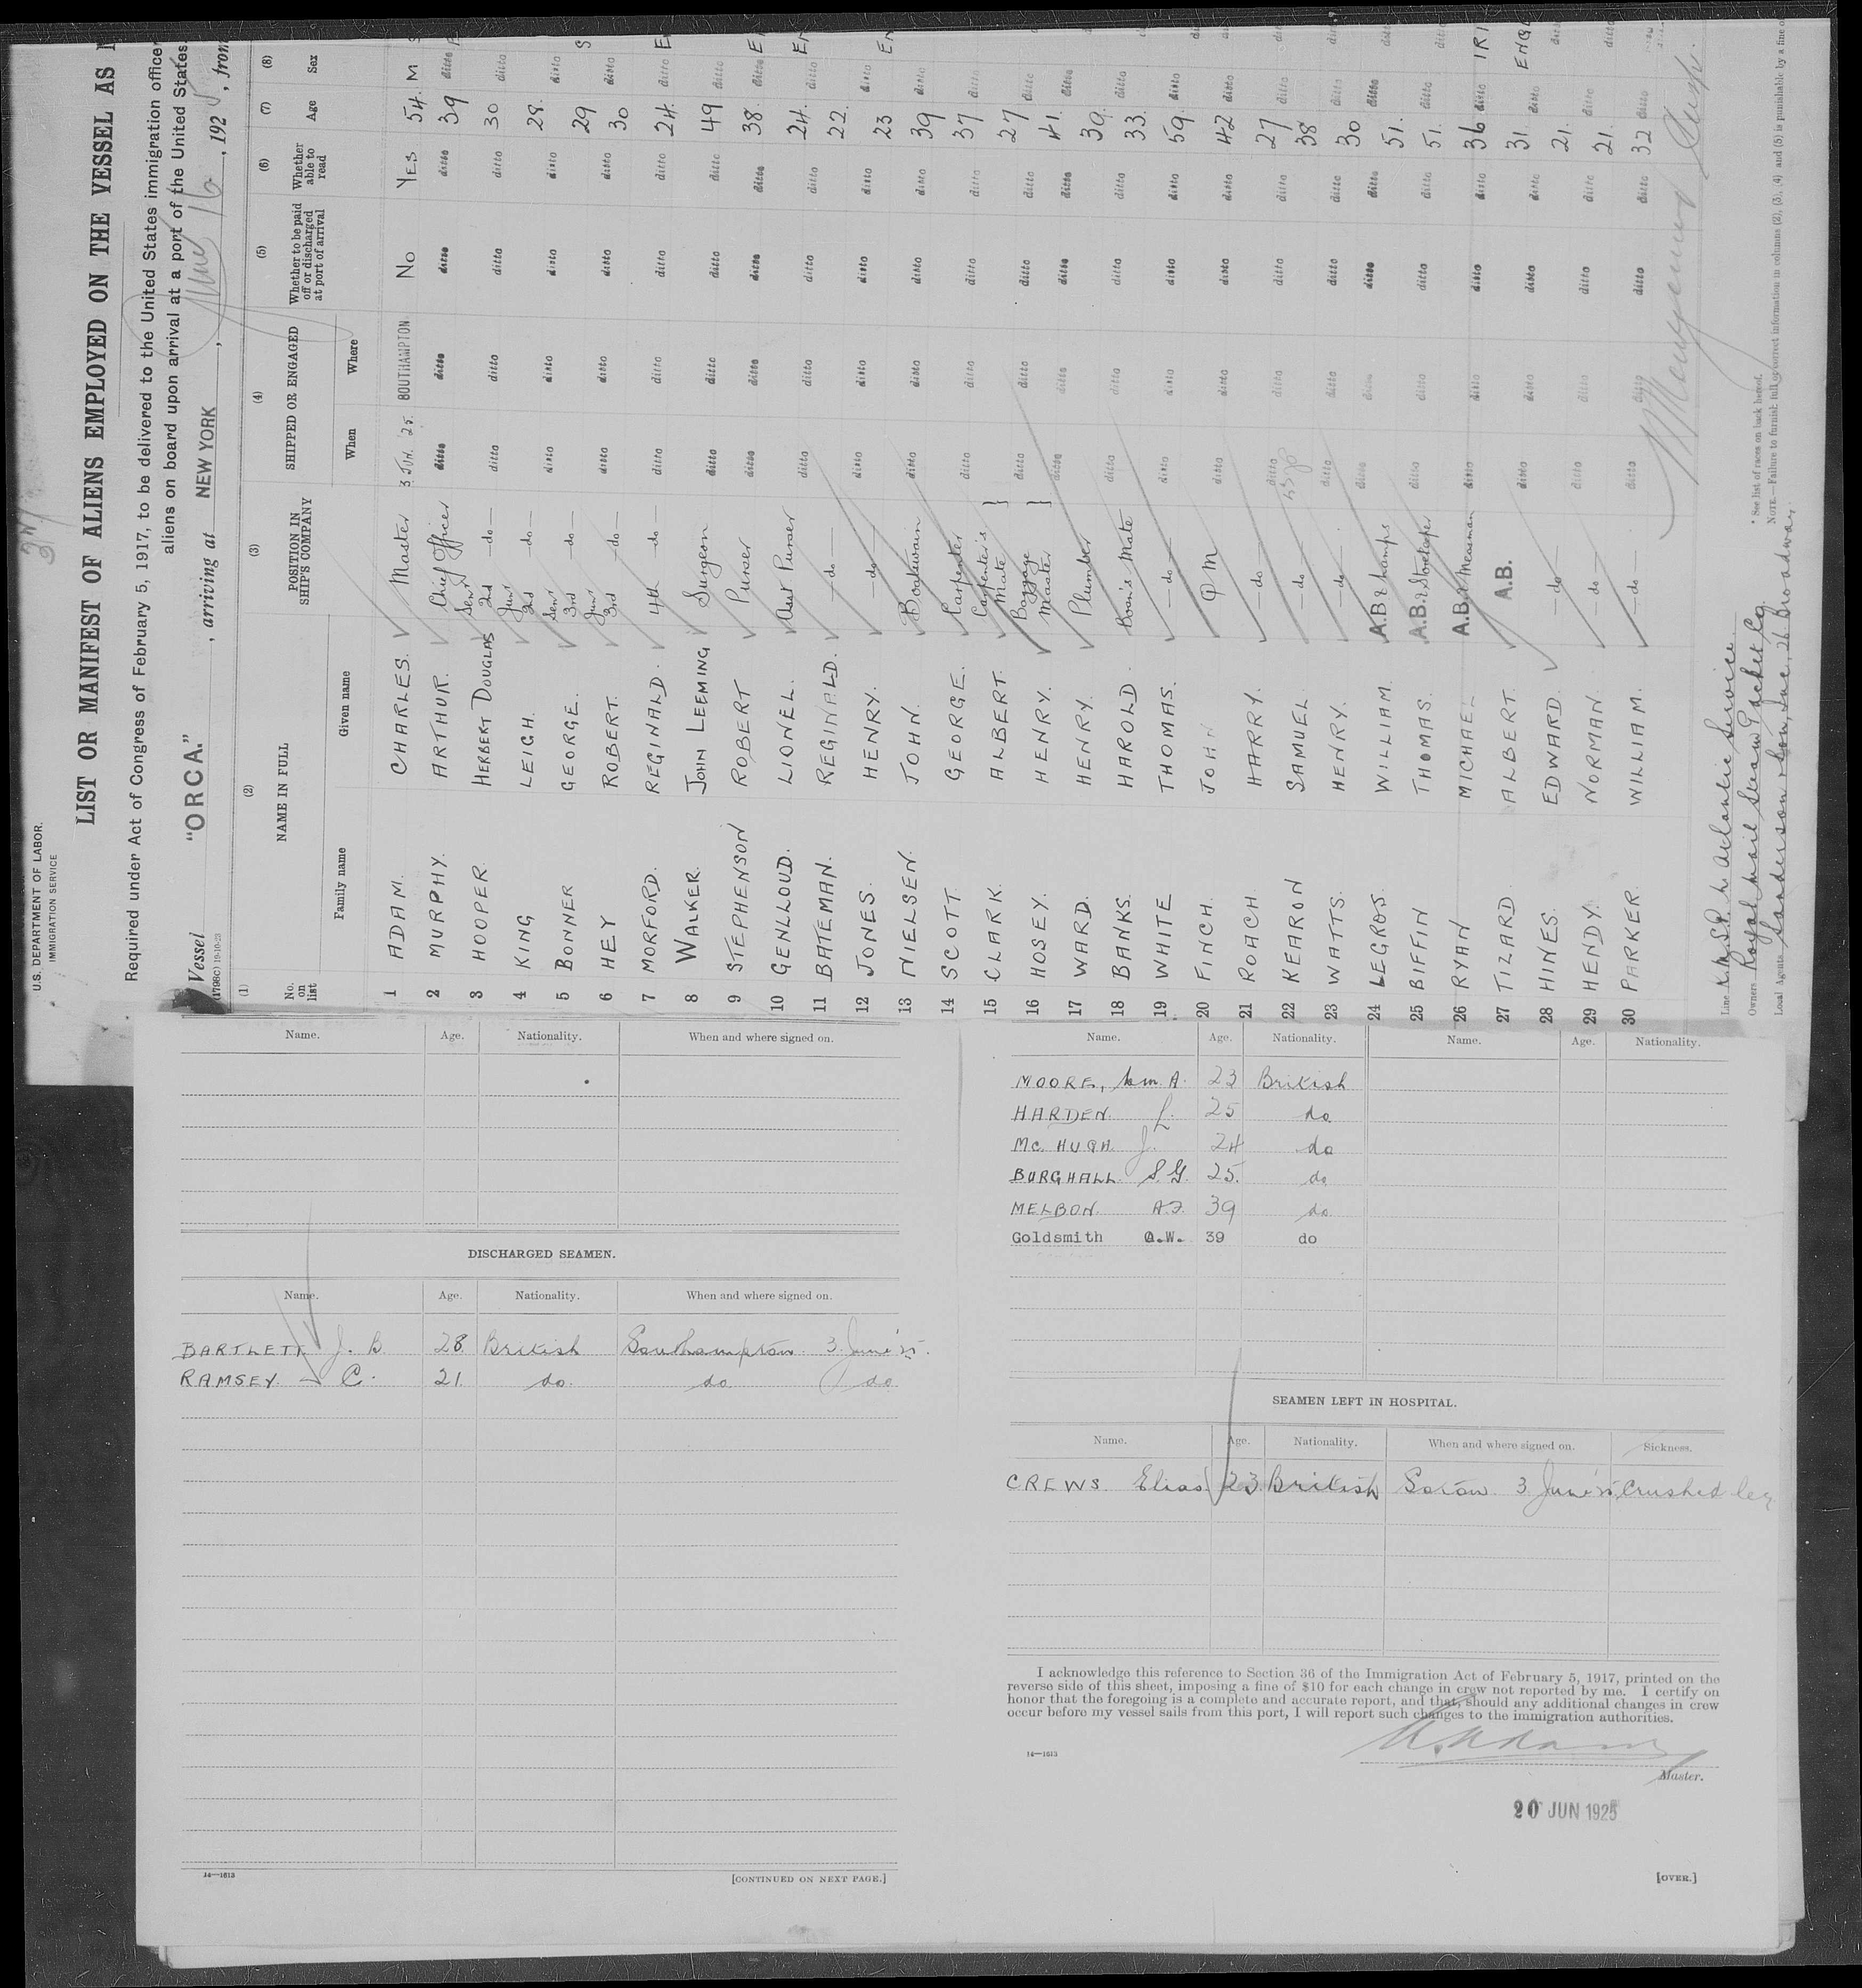 U.S. DEPARTMENT OF LABOR.
IMMIGRATION SERVICE
LIST OR MANIFEST OF ALIENS EMPLOYED ON THE VESSEL AS
Required under Act of Congress of February 5, 1917, to be delivered to the United States immigration officer
aliens on board upon arrival at a port of the United States.
Vessel "ORCA." , arriving at NEW YORK , June 16 , 1925 , from
(1) (2) (3) (4) (5) (6) (7) (8)
No. on list NAME IN FULL POSITION IN SHIP'S COMPANY SHIPPED OR ENGAGED Whether to be paid off or discharged at port of arrival Whether able to read Age Sex
Family name Given name When Where
1 ADAM. CHARLES. Master 3 JUN. '25. SOUTHAMPTON No YES 54. M
2 MURPHY. ARTHUR. Chief Officer ditto ditto ditto ditto 39 ditto
3 HOOPER. HERBERT DOUGLAS Senr 2nd —do— ditto ditto ditto ditto 30 ditto
4 KING LEIGH. Junr 2nd —do— ditto ditto ditto ditto 28. ditto
5 BONNER GEORGE. Senr 3rd —do— ditto ditto ditto ditto 29 ditto
6 HEY ROBERT. Junr 3rd —do— ditto ditto ditto ditto 30 ditto
7 MORFORD. REGINALD. 4th —do— ditto ditto ditto ditto 24. ditto
8 WALKER. JOHN LEEMING Surgeon ditto ditto ditto ditto 49 ditto
9 STEPHENSON ROBERT Purser ditto ditto ditto ditto 38. ditto
10 GENLLOUD. LIONEL. Asst Purser ditto ditto ditto ditto 24. ditto
11 BATEMAN. REGINALD. —do— ditto ditto ditto ditto 22. ditto
12 JONES. HENRY. —do— ditto ditto ditto ditto 23 ditto
13 NIELSEN. JOHN. Boatswain ditto ditto ditto ditto 39 ditto
14 SCOTT GEORGE. Carpenter ditto ditto ditto ditto 37 ditto
15 CLARK. ALBERT. Carpenter's Mate } ditto ditto ditto ditto 27 ditto
16 HOSEY. HENRY. Baggage Master } ditto ditto ditto ditto 41. ditto
17 WARD. HENRY. Plumber ditto ditto ditto ditto 39. ditto
18 BANKS. HAROLD. Bosn's Mate ditto ditto ditto ditto 33. ditto
19 WHITE THOMAS. —do— ditto ditto ditto ditto 59. ditto
20 FINCH. JOHN Q M ditto ditto ditto ditto 42 ditto
21 ROACH. HARRY. —do— ditto ditto ditto ditto 27 ditto
22 KEARON SAMUEL —do— ditto ditto ditto ditto 38 ditto
23 WATTS. HENRY. —do— ditto ditto ditto ditto 30 ditto
24 LEGROS. WILLIAM. A.B & Lamps ditto ditto ditto ditto 51. ditto
25 BIFFIN THOMAS. A.B. & Storekeeper ditto ditto ditto ditto 51. ditto
26 RYAN MICHAEL A.B. & Messman ditto ditto ditto ditto 36 ditto IRI
27 TIZARD. ALBERT. A.B. ditto ditto ditto ditto 31. ditto ENGL
28 HINES. EDWARD. do ditto ditto ditto ditto 21. ditto
29 HENDY. NORMAN. —do— ditto ditto ditto ditto 21. ditto
30 PARKER. WILLIAM. —do— ditto ditto ditto ditto 32 ditto
Line Atlantic Service
Owners Royal Mail Steam Packet Co.
Local Agents Sanderson & Son, Inc, 26 Broadway.
* See list of races on back hereof.
NOTE.—Failure to furnish full or correct information in columns (2), (3), (4) and (5) is punishable by a fine
Name. Age. Nationality. When and where signed on.
DISCHARGED SEAMEN.
Name. Age. Nationality. When and where signed on.
BARTLETT J. B. 28. British Southampton 3 June '25.
RAMSEY C. 21. do. do do
14—1613
[CONTINUED ON NEXT PAGE.]
Name. Age. Nationality. Name. Age. Nationality.
MOORE, Wm. A. 23 British
HARDEN. L. 25 do
Mc HUGH. J. 24 do
BURGHALL S.G. 25. do
MELBON. A.J. 39 do.
Goldsmith O.W. 39 do
SEAMEN LEFT IN HOSPITAL.
Name. Age. Nationality. When and where signed on. Sickness.
CREWS Elias 23. British Soton 3 June '25 Crushed leg
I acknowledge this reference to Section 36 of the Immigration Act of February 5, 1917, printed on the
reverse side of this sheet, imposing a fine of $10 for each change in crew not reported by me. I certify on
honor that the foregoing is a complete and accurate report, and that, should any additional changes in crew
occur before my vessel sails from this port, I will report such changes to the immigration authorities.
14—1613
Master.
20 JUN 1925
[OVER.]